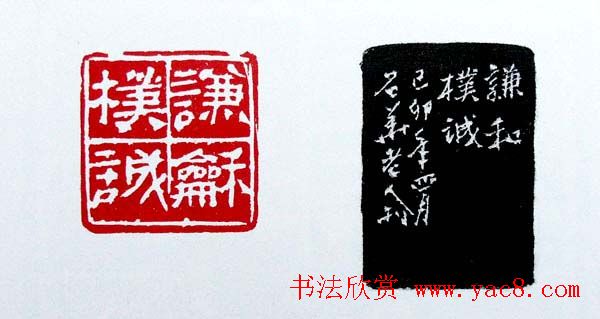 謙龢
樸誠
謙和
樸誠
己卯年四月
老人
书法欣赏 www.yac8.com